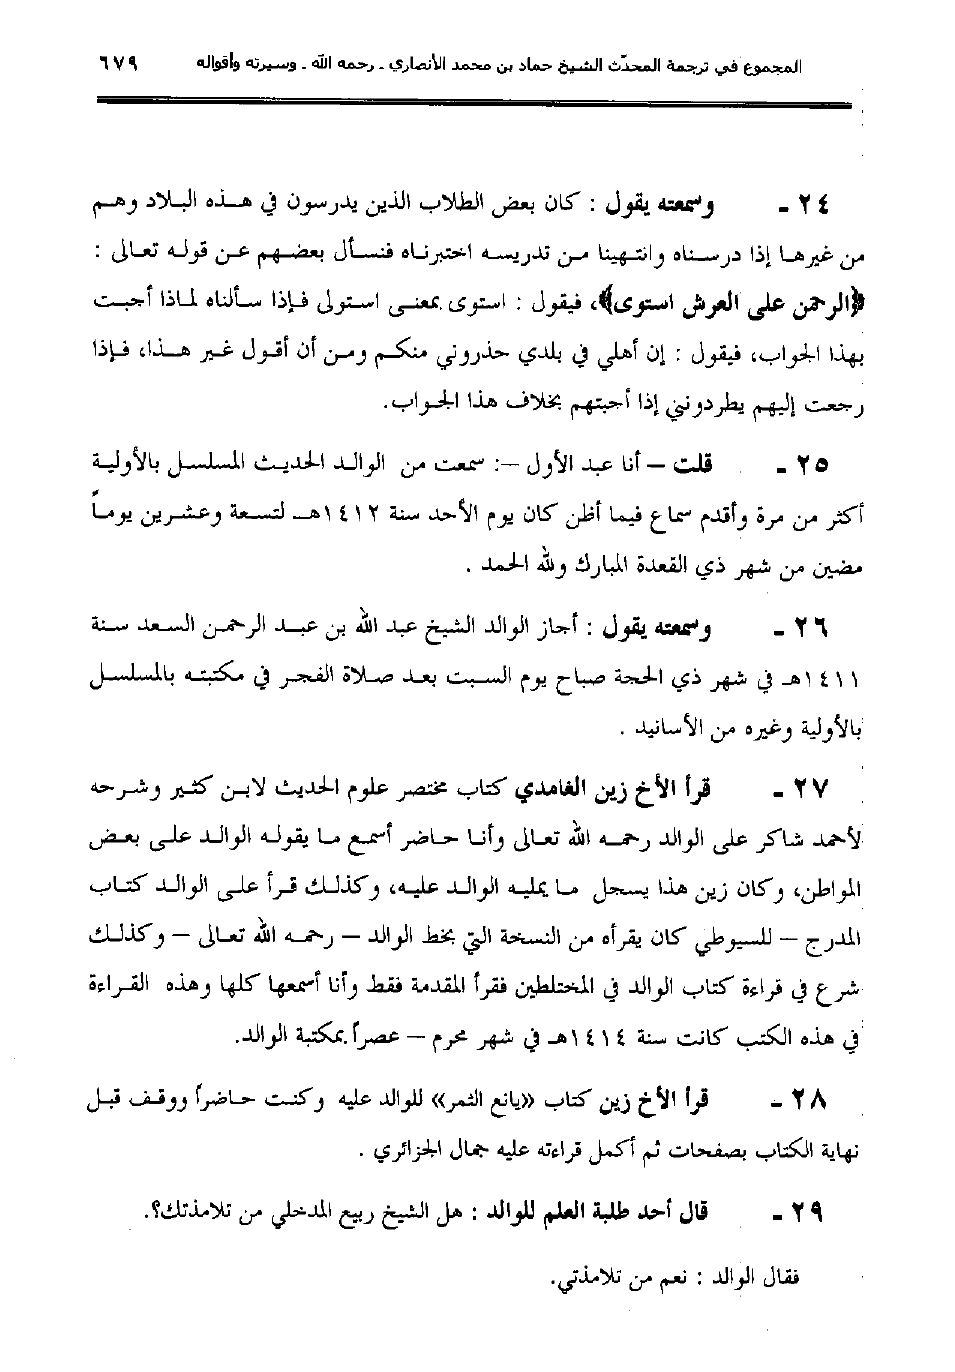 المجموع في ترجمة المحدّث الشيخ حماد بن محمد الأنصاري ـ رحمه الله ـ وسيرته وأقواله ٦٧٩
٢٤ - وسمعته يقول : كان بعض الطلاب الذين يدرسون في هذه البلاد وهم
من غيرها إذا درسناه وانتهينا من تدريسه اختبرناه فنسأل بعضهم عن قوله تعالى :
﴿الرحمن على العرش استوى﴾، فيقول : استوى بمعنى استولى فإذا سألناه لماذا أجبت
بهذا الجواب، فيقول : إن أهلي في بلدي حذروني منكم ومن أن أقول غير هذا، فإذا
رجعت إليهم يطردونني إذا أجبتهم بخلاف هذا الجواب.
٢٥ - قلت – أنا عبد الأول –: سمعت من الوالد الحديث المسلسل بالأولية
أكثر من مرة وأقدم سماع فيما أظن كان يوم الأحد سنة ١٤١٢هـ لتسعة وعشرين يوماً
مضين من شهر ذي القعدة المبارك ولله الحمد .
٢٦ - وسمعته يقول : أجاز الوالد الشيخ عبد الله بن عبد الرحمن السعد سنة
١٤١١هـ في شهر ذي الحجة صباح يوم السبت بعد صلاة الفجر في مكتبته بالمسلسل
بالأولية وغيره من الأسانيد .
٢٧ - قرأ الأخ زين الغامدي كتاب مختصر علوم الحديث لابن كثير وشرحه
لأحمد شاكر على الوالد رحمه الله تعالى وأنا حاضر أسمع ما يقوله الوالد على بعض
المواطن، وكان زين هذا يسجل ما يمليه الوالد عليه، وكذلك قرأ على الوالد كتاب
المدرج – للسيوطي كان يقرأه من النسخة التي بخط الوالد – رحمه الله تعالى – وكذلك
شرع في قراءة كتاب الوالد في المختلطين فقرأ المقدمة فقط وأنا أسمعها كلها وهذه القراءة
في هذه الكتب كانت سنة ١٤١٤هـ في شهر محرم – عصراً بمكتبة الوالد.
٢٨ - قرأ الأخ زين كتاب «يانع الثمر» للوالد عليه وكنت حاضراً ووقف قبل
نهاية الكتاب بصفحات ثم أكمل قراءته عليه جمال الجزائري .
٢٩ - قال أحد طلبة العلم للوالد : هل الشيخ ربيع المدخلي من تلامذتك؟.
فقال الوالد : نعم من تلامذتي.